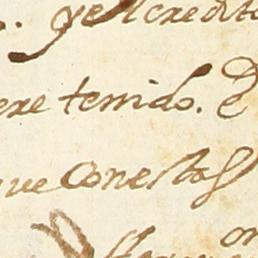 . yel credito
ere tenido. E
que Conestas
on